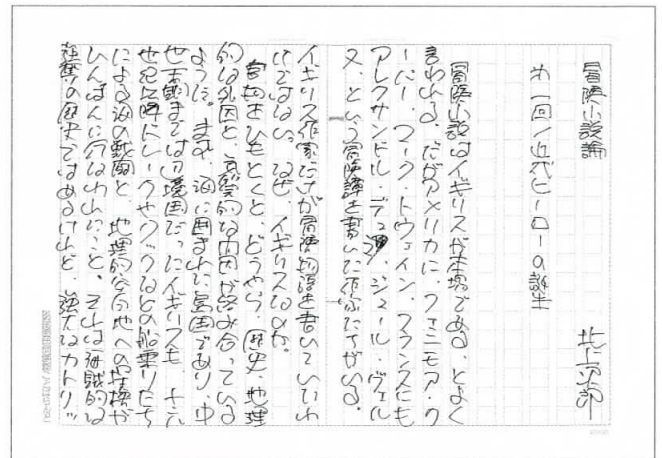 冒険小説論
北上次郎
第一回／近代ヒーローの誕生
冒険小説はイギリスが本場である、とよく
言われる。だがアメリカに、フェニモア・ク
ーパー、マーク・トウェイン、フランスにも
アレクサンドル・デュマ、ジュール・ヴェル
ヌ、という冒険譚を書いた作家たちがいる。
イギリス作家だけが冒険物語を書いていたわ
けではない。なぜ、イギリスなのか。
書物をひもとくと、どうやら、歴史・地理
的な外因と、
的な内因が絡み合っている
ようだ。まず、海に囲まれた島国であり、中
世末期までは辺境国だったイギリスも、十六
世紀以降ドレークやクックなどの船乗りたち
による海の戦闘と、地理的な各地への
が
ひんぱんに行なわれたこと。それは海賊的な
の歴史ではあるけれど、強大なカトリッ